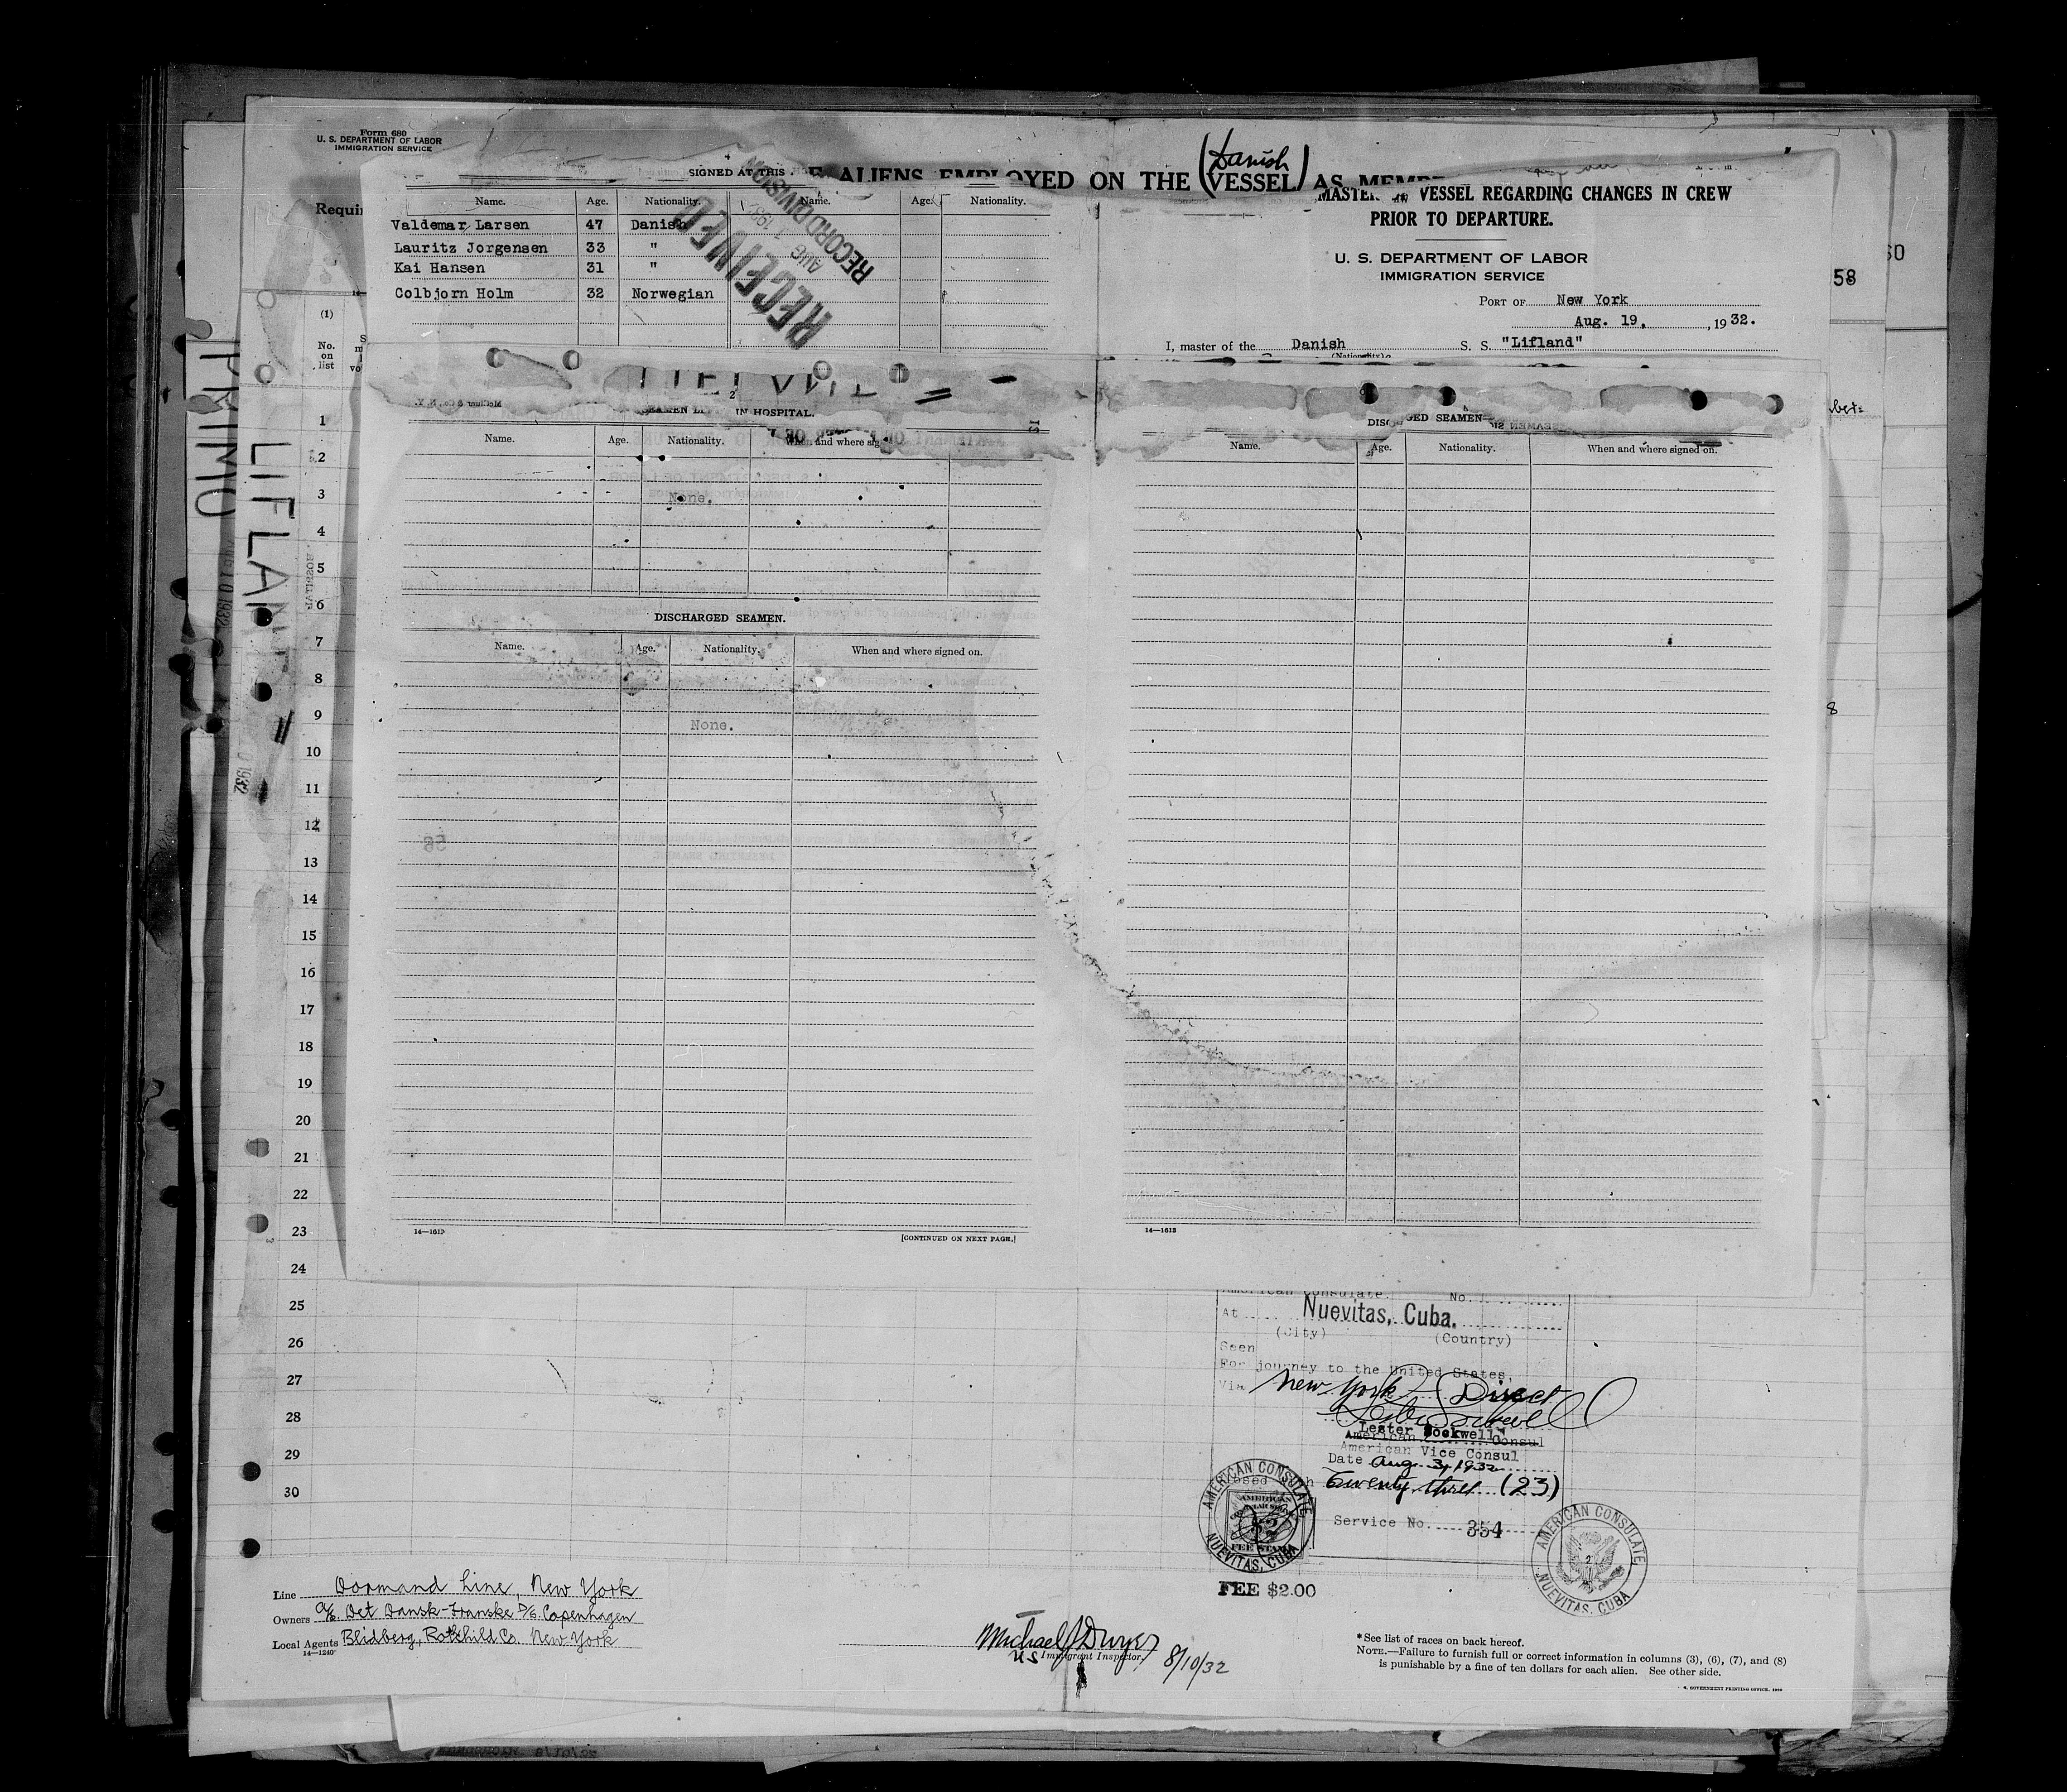 Form 680
U. S. DEPARTMENT OF LABOR
IMMIGRATION SERVICE
ALIENS EMPLOYED ON THE (Danish VESSEL) AS
SIGNED AT THIS
Name. Age. Nationality. Name. Age. Nationality.
Valdemar Larsen 47 Danish
Lauritz Jorgensen 33 "
Kai Hansen 31 "
Colbjorn Holm 32 Norwegian
RECEIVED
AUG
RECORD DIVISION
VESSEL REGARDING CHANGES IN CREW
PRIOR TO DEPARTURE.
U. S. DEPARTMENT OF LABOR
IMMIGRATION SERVICE
PORT OF New York
Aug. 19, , 1932.
I, master of the Danish S. S. "Lifland"
(Nationality)
58
(1)
No.
on
list
2
IN HOSPITAL.
Name. Age. Nationality. When and where
None.
DISCHARGED SEAMEN.
Name. Age. Nationality. When and where signed on.
None.
14—1613
[CONTINUED ON NEXT PAGE.]
DISCHARGED SEAMEN
Name. Age. Nationality. When and where signed on.
14—1613
PRIMO
LIFLAND
1
2
3
4
5
6
7
8
9
10
11
12
13
14
15
16
17
18
19
20
21
22
23
24
25
26
27
28
29
30
American Consulate No.
At Nuevitas, Cuba.
(City) (Country)
Seen
For journey to the United States,
Via New York Direct
Lester Sockwell
American Consul
American Vice Consul
Date Aug. 3, 1932
Twenty three (23)
Service No. 354
AMERICAN CONSULATE
NUEVITAS, CUBA
AMERICAN
$2
FEE STAMP
AMERICAN CONSULATE
NUEVITAS, CUBA
FEE $2.00
Line Dormand Line, New York
Owners A/S. Det Dansk-Franske D/S. Copenhagen
Local Agents Blidberg, Rothchild Co. New York
14—1240
Michael J Dwyer
US Immigrant Inspector. 8/10/32
*See list of races on back hereof.
NOTE.—Failure to furnish full or correct information in columns (3), (6), (7), and (8)
is punishable by a fine of ten dollars for each alien. See other side.